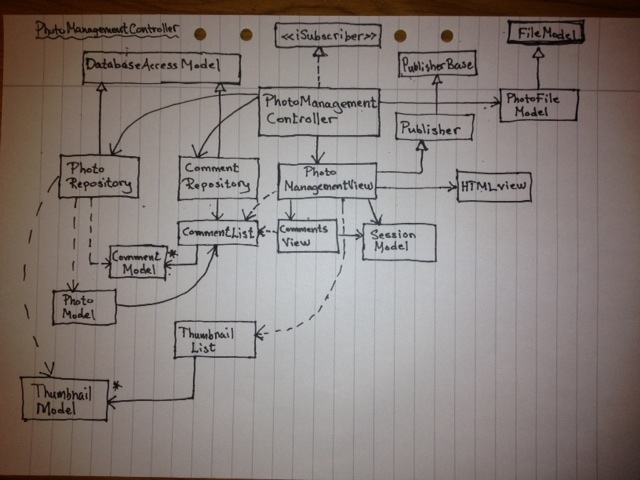 PhotoManagementController
<<iSubscriber>>
FileModel
DatabaseAccessModel
PublisherBase
PhotoManagement
Controller
PhotoFile
Model
Publisher
Photo
Repository
Comment
Repository
Photo
ManagementView
HTMLview
CommentList
Comments
View
Session
Model
Comment
Model
*
Photo
Model
Thumbnail
List
Thumbnail
Model
*